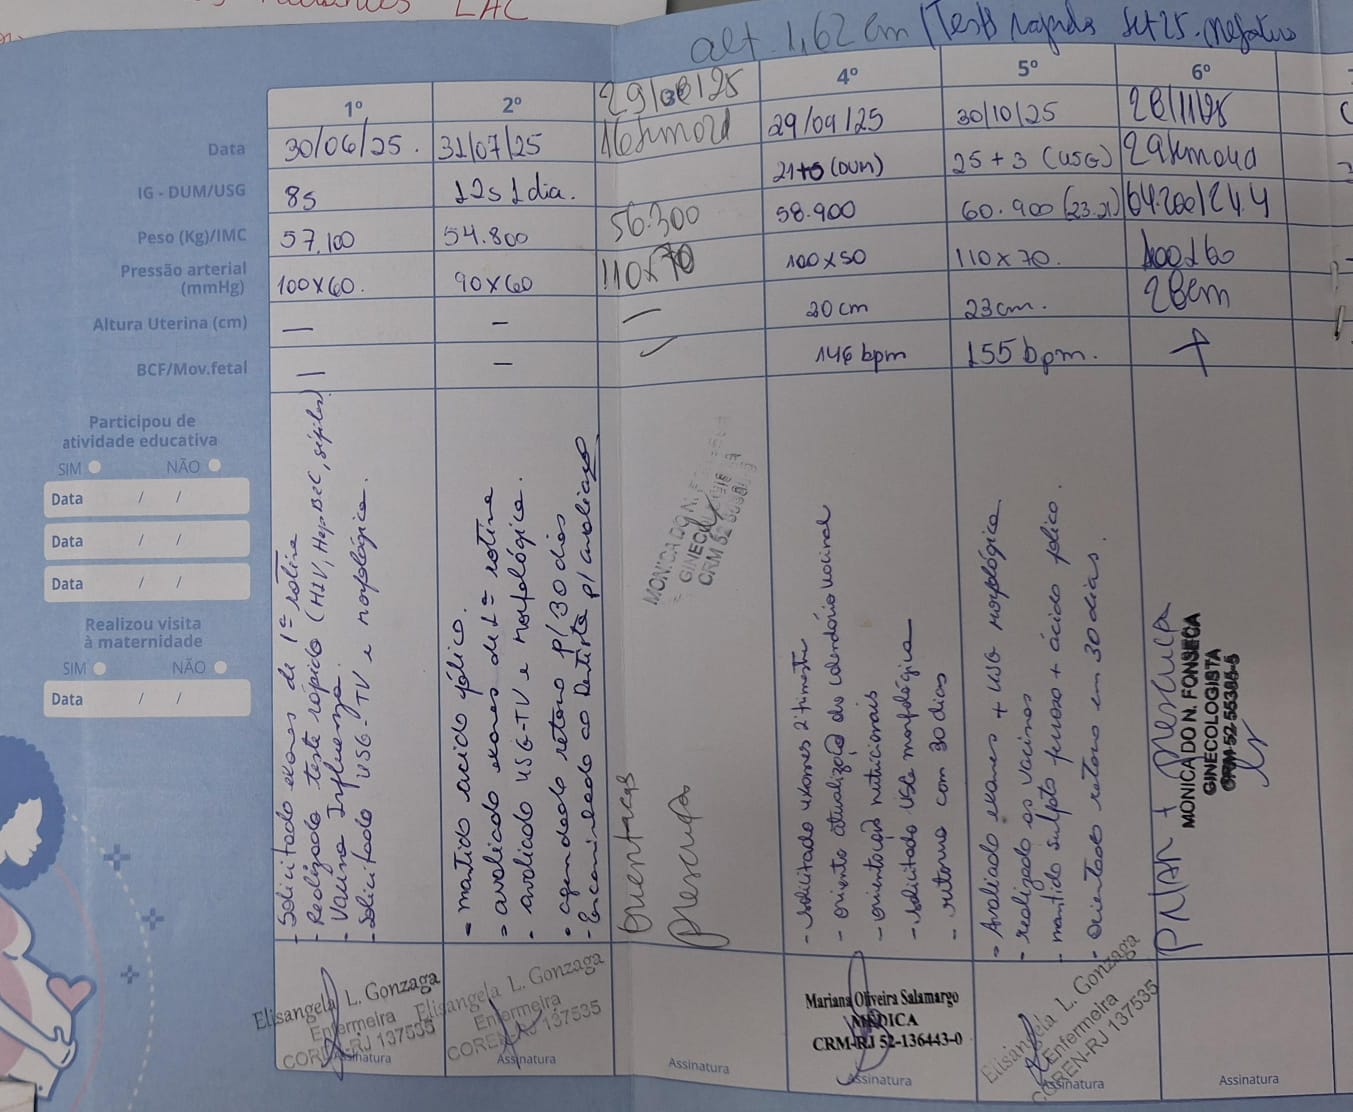 LAC
alt. 1,62 cm / Test rapido set 25. negativo
1º 2º 29/08/25 4º 5º 6º
Data 30/06/25. 31/07/25 16semana 29/09/25 30/10/25 28/11/25
IG - DUM/USG 8s 12s 1 dia. 21+5 (DUM) 25 + 3 (USG) 29semana
Peso (Kg)/IMC 57.100 54.800 56.300 58.900 60.900 (23.21) 64.200/24.4
Pressão arterial
(mmHg) 100x60. 90x60 110x70 100x50 110x70. 100x60
Altura Uterina (cm) — - — 20cm 23cm. 28cm
BCF/Mov.fetal — - 146 bpm 155 bpm. +
Participou de
atividade educativa
SIM NÃO
Data / /
Data / /
Data / /
Realizou visita
à maternidade
SIM NÃO
Data / /
- Solicitado exames de 1ª rotina
- Realizado teste rápido (HIV, Hep B e C, sífilis)
- Vacina Influenza.
- Solicitado USG-TV e morfológica.
- mantido ácido fólico.
- avaliado exames de 1ª rotina
- avaliado USG-TV e morfológica.
- agendado retorno p/ 30 dias
- Encaminhado ao Dentista p/ avaliação
orientações
prescrição
MONICA DO N. FONSECA
GINECOLOGISTA
CRM 52
- solicitado exames 2º trimestre
- oriento atualização do calendário vacinal
- orientações nutricionais
- solicitado USG morfológica
- retorno com 30 dias
- Avaliado exames + USG morfológica
- realizado as vacinas
- mantido sulfato ferroso + ácido fólico.
- Orientado retorno em 30 dias.
PNAR + prescrição
MONICA DO N. FONSECA
GINECOLOGISTA
CRM 52-55385-5
Elisangela L. Gonzaga
Enfermeira
COREN-RJ 137535
Assinatura
Elisangela L. Gonzaga
Enfermeira
COREN-RJ 137535
Assinatura
Assinatura
Mariana Oliveira Salamargo
MÉDICA
CRM-RJ 52-136443-0
Assinatura
Elisangela L. Gonzaga
Enfermeira
COREN-RJ 137535
Assinatura
Assinatura